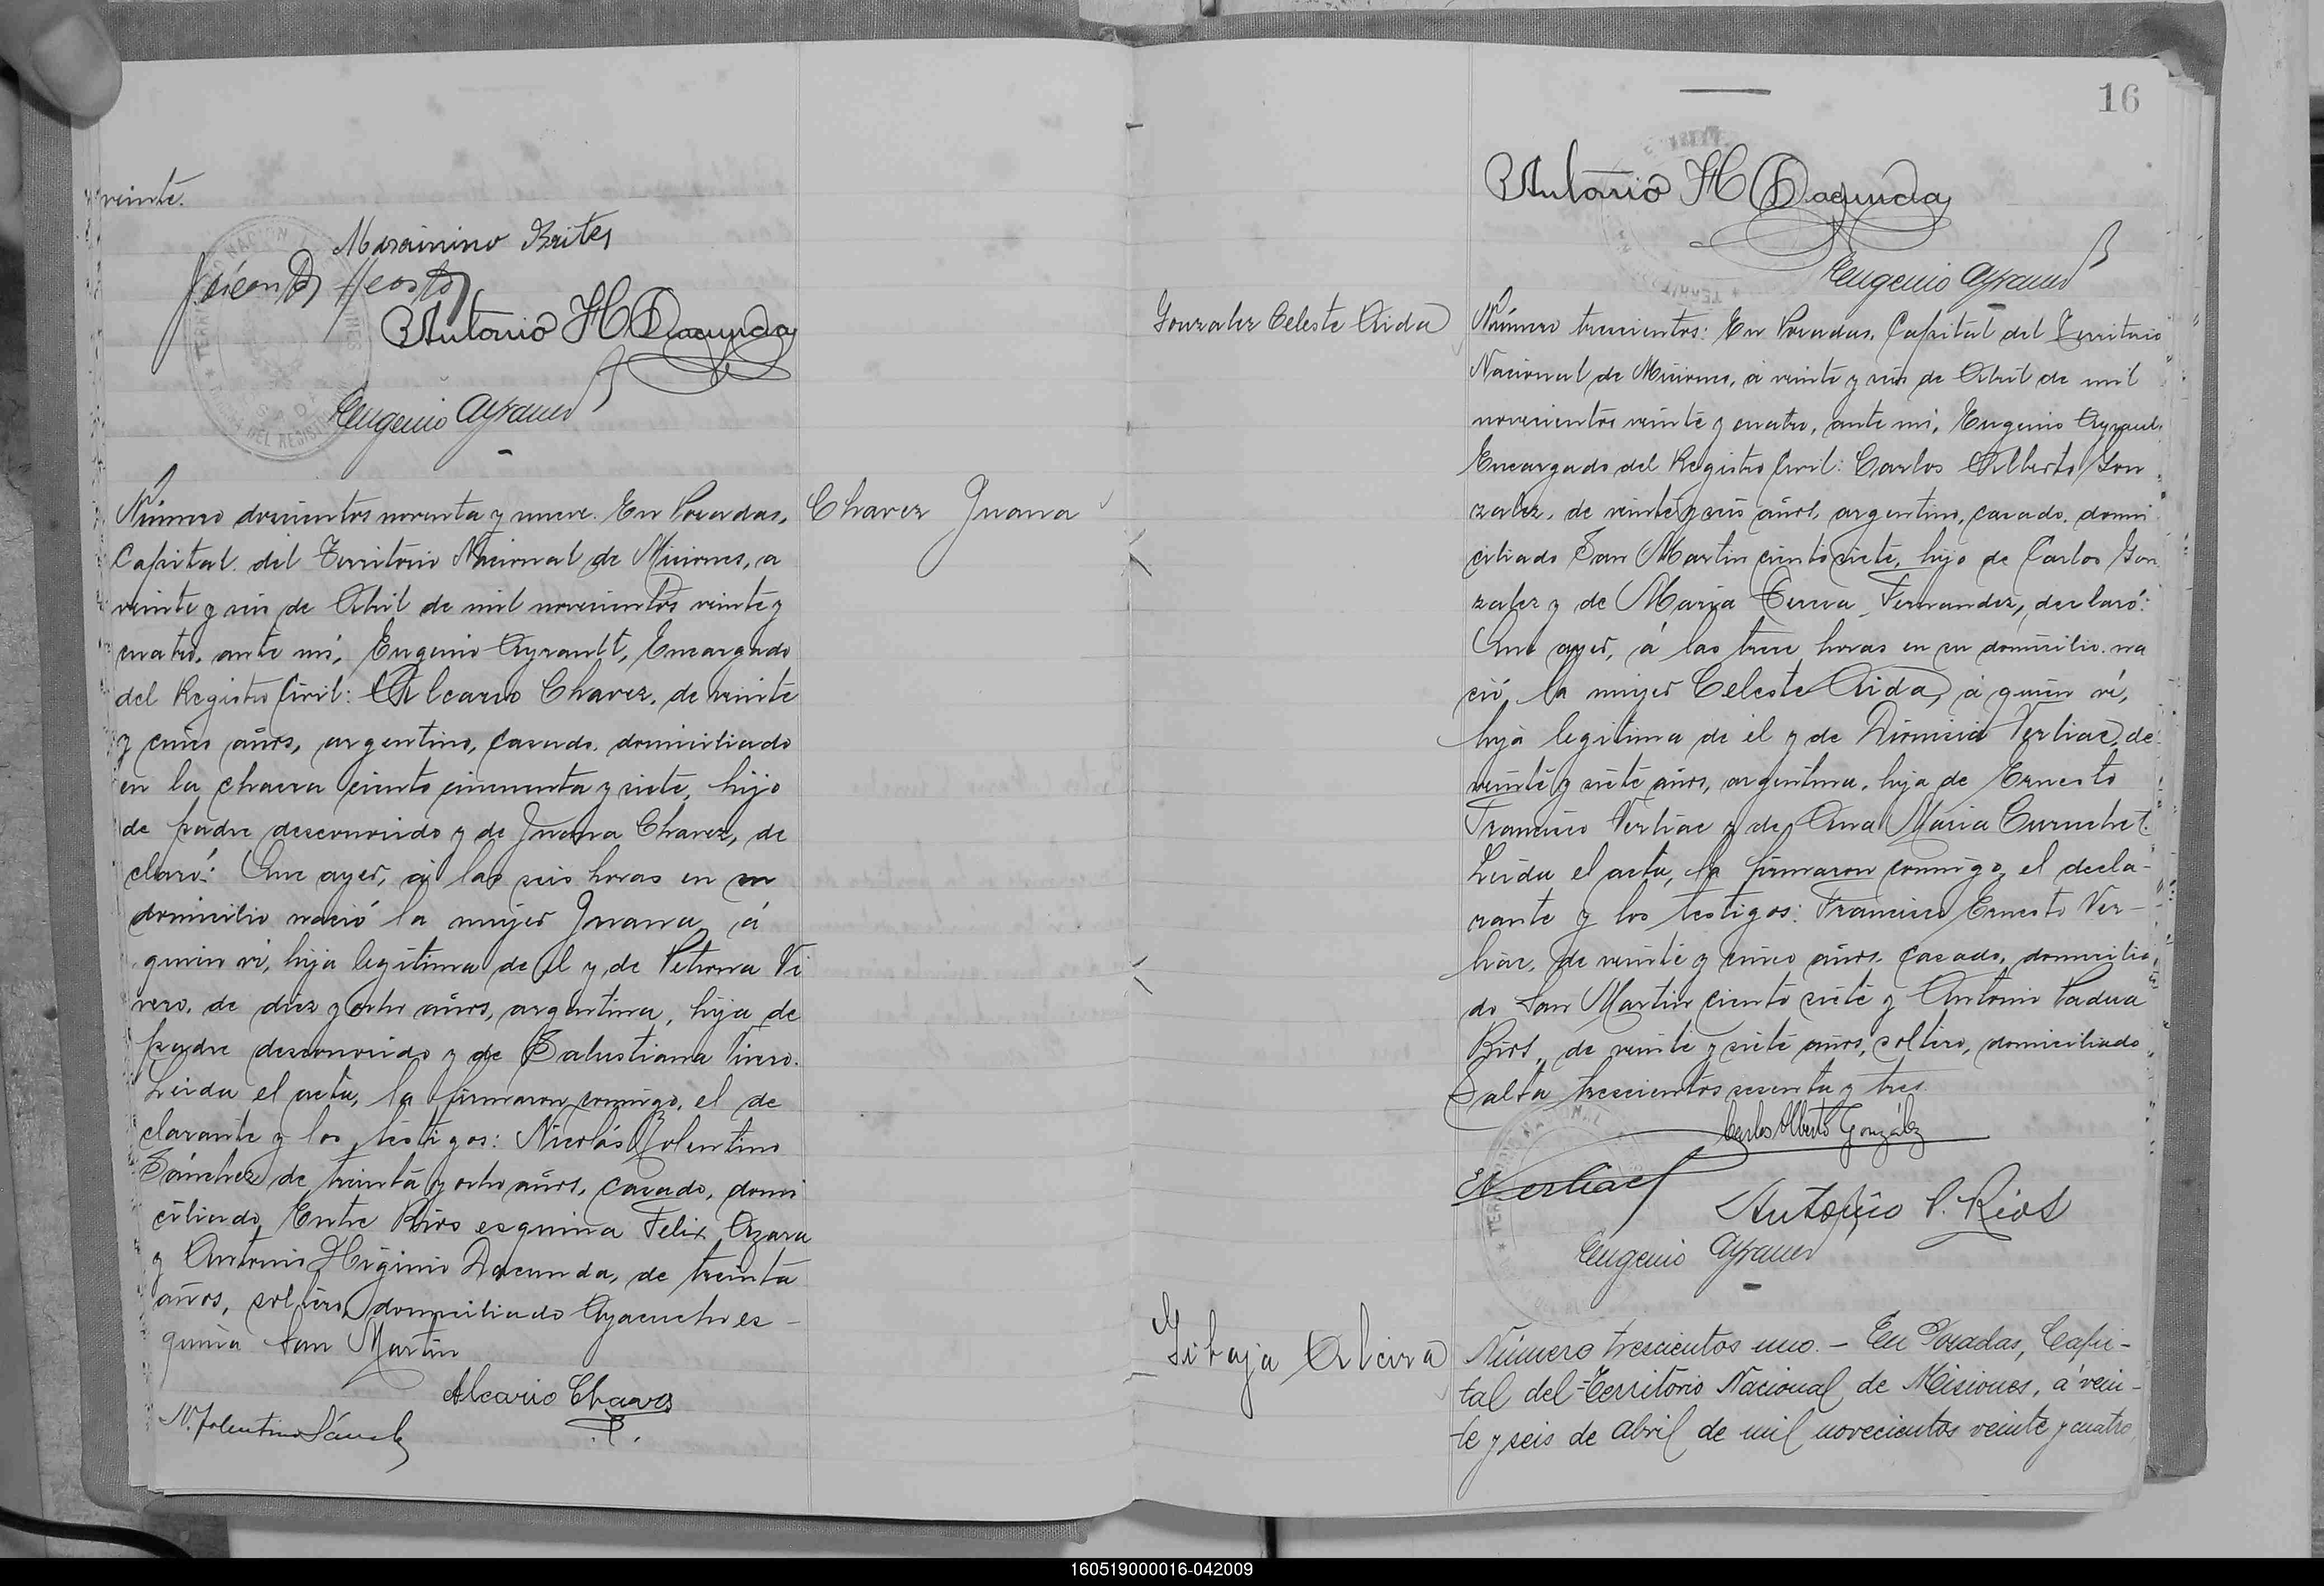 veinte.
Marcinino Brites
Antonio H Dacunda
Eugenio Ayrault
Número doscientos noventa y nueve. En Posadas,
Chavez Juana
Capital del Territorio Nacional de Misiones, a
veinte y seis de Abril de mil novecientos veinte y
cuatro, ante mí, Eugenio Ayrault, Encargado
del Registro Civil: Alcario Chavez, de veinte
y cinco años, argentino, casado, domiciliado
en la chacra ciento cincuenta y siete, hijo
de padre desconocido y de Juana Chavez, de
claró: Que ayer, a las seis horas en su
domicilio nació la mujer Juana, á
quien vi, hija legítima de él y de Petrona Vi
vero, de diez y ocho años, argentina, hija de
padre desconocido y de Salustiana Vivero.
Leida el acta, la firmaron conmigo, el de
clarante y los testigos: Nicolás Tolentino
Sánchez de treinta y ocho años, casado, domi
ciliado Entre Rios esquina Felix Azara
y Antonio Higinio Dacunda, de treinta
años, soltero, domiciliado Ayacucho es-
quina San Martin
Alcario Chaves
N. Tolentino Sánchez
16
Antonio H Dacunda
Eugenio Ayrault
Gonzalez Celeste Aida
Número trescientos: En Posadas, Capital del Territorio
Nacional de Misiones, a veinte y seis de Abril de mil
novecientos veinte y cuatro, ante mí, Eugenio Ayrault,
Encargado del Registro Civil: Carlos Alberto Gon
zalez, de veinte y seis años, argentino, casado, domi
ciliado San Martin ciento siete, hijo de Carlos Gon
zalez y de María Teresa Fernandez, declaró:
Que ayer, á las trece horas en su domicilio na
ció la mujer Celeste Aida, á quien ví,
hija legítima de él y de Dionisia Vertiac, de
veinte y siete años, argentina, hija de Ernesto
Francisco Vertiac y de Ana Maria Curuchet.
Leida el acta, la firmaron conmigo, el decla-
rante y los testigos: Francisco Ernesto Ver-
tiac, de veinte y cinco años, casado, domicilia
do San Martin ciento siete y Antonio Padua
Rios, de veinte y siete años, soltero, domiciliado
Salta trescientos sesenta y tres.
Carlos Alberto González
Vertiac
Antonio P. Rios
Eugenio Ayrault
Gibaja Alcira
Número trescientos uno. - En Posadas, Capi-
tal del Territorio Nacional de Misiones, á vein-
te y seis de Abril de mil novecientos veinte y cuatro,
160519000016-042009